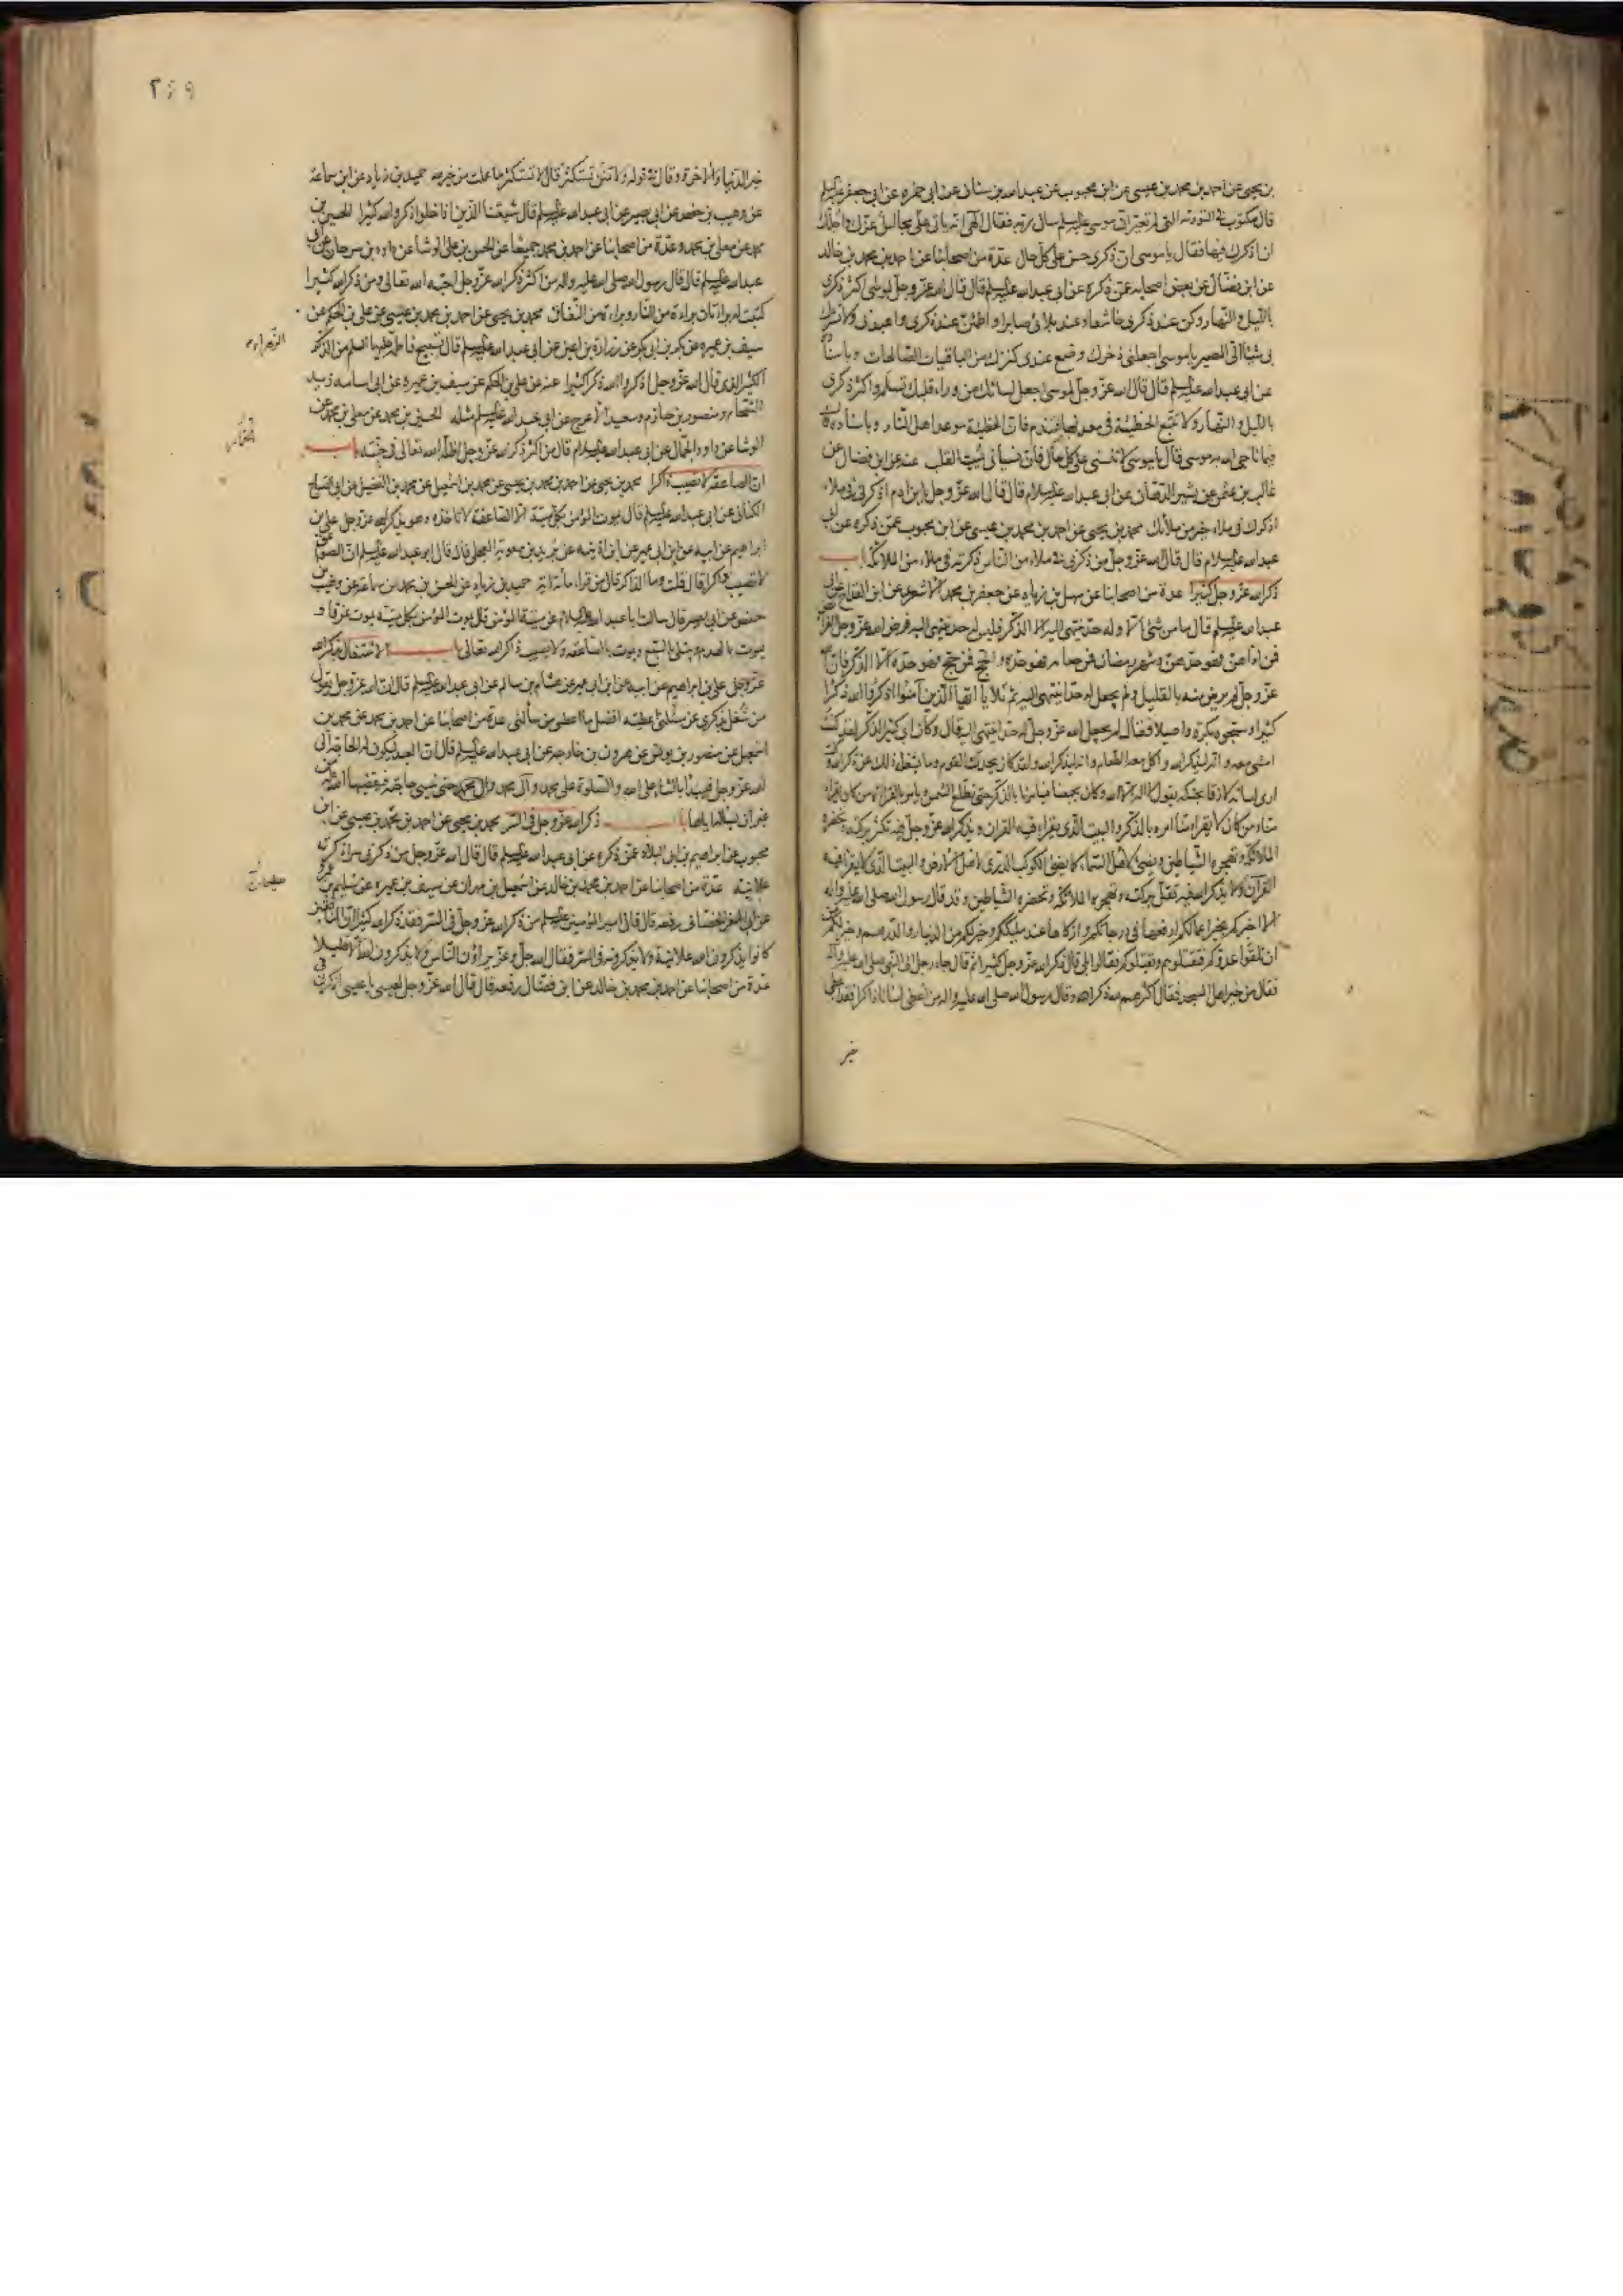 بن يحيى عن احمد بن محمد بن عيسى عن ابن محبوب عن عبد الله بن سنان عن ابى حمزه عن ابى جعفر عليه السلم
قال مكتوب فى التورية التى لم تغير ان موسى عليه السلم سال ربه فقال الهى انه ياتى علىّ مجالس اعزك واجلك
ان اذكرك فيها فقال يا موسى ان ذكرى حسن على كل حال عدة من اصحابنا عن احمد بن محمد بن خالد
عن ابن فضال عن بعض اصحابه عمن ذكره عن ابى عبد الله عليه السلم قال قال الله عز وجل لموسى اكثر ذكرى
بالليل والنهار وكن عند ذكرى خاشعا وعند بلائى صابرا واطمئن عند ذكرى واعبدنى ولا تشرك
بى شيئا الىّ المصير يا موسى اجعلنى ذخرك وضع عندى كنزك من الباقيات الصالحات وباسناده
عن ابى عبد الله عليه السلم قال قال الله عز وجل لموسى اجعل لسانك من وراء قلبك تسلم واكثر ذكرى
بالليل والنهار ولا تتبع الخطيئة فى معدنها فتندم فان الخطيئة موعد اهل النار وباسناده قال
فيما ناجى الله به موسى قال يا موسى لا تنسنى على كل حال فان نسيانى يميت القلب عنه عن ابن فضال عن
غالب بن عثمن عن بشير الدهان عن ابى عبد الله عليه السلام قال قال الله عز وجل يا بن ادم اذكرنى فى ملاء
اذكرك فى ملاء خير من ملائك محمد بن يحيى عن احمد بن محمد بن عيسى عن ابن محبوب عمن ذكره عن ابى
عبد الله عليه السلام قال قال الله عز وجل من ذكرنى فى ملاء من الناس ذكرته فى ملاء من الملائكة باب
ذكر الله عز وجل كثيرا عدة من اصحابنا عن سهل بن زياد عن جعفر بن محمد الاشعرى عن ابن القداح عن ابى
عبد الله عليه السلم قال ما من شئ الا وله حد ينتهى اليه الا الذكر فليس له حد ينتهى اليه فرض الله عز وجل الفرائض
فمن اداهن فهو حدهن وشهر رمضان فمن صامه فهو حده والحج فمن حج فهو حده الا الذكر فان الله
عز وجل لم يرض منه بالقليل ولم يجعل له حدا ينتهى اليه ثم تلا يا ايها الذين آمنوا اذكروا الله ذكرا
كثيرا وسبحوه بكرة واصيلا فقال لم يجعل الله عز وجل له حدا ينتهى اليه قال وكان ابى كثير الذكر لقد كنت
امشى معه وانه ليذكر الله واكل معه الطعام وانه ليذكر الله ولقد كان يحدث القوم وما يشغله ذلك عن ذكر الله وكنت
ارى لسانه لازقا بحنكه يقول لا اله الا الله وكان يجمعنا فيامرنا بالذكر حتى تطلع الشمس ويامر بالقراءة من كان يقراء
منا ومن كان لا يقراء منا امره بالذكر والبيت الذى يقراء فيه القران ويذكر الله عز وجل فيه تكثر بركته وتحضره
الملائكة وتهجره الشياطين ويضئ لاهل السماء كما يضئ الكوكب الدرى لاهل الارض والبيت الذى لا يقراء فيه
القرآن ولا يذكر الله فيه تقل بركته وتهجره الملائكة وتحضره الشياطين وقد قال رسول الله صلى الله عليه واله
الا اخبركم بخير اعمالكم ارفعها فى درجاتكم وازكاها عند مليككم وخير لكم من الدينار والدرهم وخير لكم من
ان تلقوا عدوكم فتقتلوهم ويقتلوكم فقالوا بلى قال ذكر الله عز وجل كثيرا ثم قال جاء رجل الى النبى صلى الله عليه واله
فقال من خير اهل المسجد فقال اكثرهم لله ذكرا وقال رسول الله صلى الله عليه واله من اعطى لسانا ذاكرا فقد اعطى
خير
٢٤٩
خير الدنيا والاخرة وقال فى قوله ولا تمنن تستكثر قال لا تستكثر ما عملت من خير لله حميد بن زياد عن ابن سماعة
عن وهيب بن حفص عن ابى بصير عن ابى عبد الله عليه السلم قال شيعتنا الذين اذا خلوا ذكروا الله كثيرا الحسين بن
محمد عن معلى بن محمد وعدة من اصحابنا عن احمد بن محمد جميعا عن الحسن بن على الوشا عن داود بن سرحان عن ابى
عبد الله عليه السلم قال قال رسول الله صلى الله عليه واله من اكثر ذكر الله عز وجل احبه الله تعالى ومن ذكر الله كثيرا
كتبت له براءتان براءة من النار وبراءة من النفاق محمد بن يحيى عن احمد بن محمد بن عيسى عن على بن الحكم عن
سيف بن عميره عن بكر بن ابى بكر عن زرارة بن اعين عن ابى عبد الله عليه السلم قال تسبيح فاطمة عليها السلم من الذكر
الزهراء
الكثير الذى قال الله عز وجل اذكروا الله ذكرا كثيرا عنه عن على بن الحكم عن سيف بن عميره عن ابى اسامه زيد
الشحام ومنصور بن حازم وسعيد الاعرج عن ابى عبد الله عليه السلم مثله الحسين بن محمد عن معلى بن محمد عن
الوشا عن داود الحمال عن ابى عبد الله عليه السلام قال من اكثر ذكر الله عز وجل اظله الله تعالى فى جنته باب
ان الصاعقة لا تصيب ذاكرا محمد بن يحيى عن احمد بن محمد بن عيسى عن محمد بن اسمعيل عن محمد بن الفضيل عن ابى الصباح
الكنانى عن ابى عبد الله عليه السلم قال يموت المؤمن بكل ميتة الا الصاعقة لا تاخذه وهو يذكر الله عز وجل على بن
ابراهيم عن ابيه عن ابن ابى عمير عن ابن اذينه عن بريد بن معوية العجلى قال قال ابو عبد الله عليه السلم ان الصواعق
لا تصيب ذاكرا قال قلت وما الذاكر قال من قراء مأة آية حميد بن زياد عن الحسن بن محمد بن سماعة عن وهيب بن
حفص عن ابى بصير قال سالت ابا عبد الله عليه السلام عن ميتة المؤمن قال يموت المؤمن بكل ميتة يموت غرقا و
يموت بالهدم ويبتلى بالسبع ويموت بالصاعقة ولا يصيب ذاكر الله تعالى باب الاشتغال بذكر الله
عز وجل على بن ابراهيم عن ابيه عن ابن ابى عمير عن هشام بن سالم عن ابى عبد الله عليه السلم قال ان الله عز وجل يقول
من شغل بذكرى عن مسئلتى اعطيته افضل ما اعطى من سألنى عدة من اصحابنا عن احمد بن محمد عن محمد بن
اسمعيل عن منصور بن يونس عن هرون بن خارجة عن ابى عبد الله عليه السلم قال ان العبد ليكون له الحاجة الى
الله عز وجل فيبدأ بالثناء على الله والصلوة على محمد وآل محمد حتى ينسى حاجته فيقضيها الله له من
غير ان يسأله اياها باب ذكر الله عز وجل فى السر محمد بن يحيى عن احمد بن محمد بن عيسى عن ابن
محبوب عن ابراهيم بن ابى البلاد عمن ذكره عن ابى عبد الله عليه السلم قال قال الله عز وجل من ذكرنى سرا ذكرته
علانية عدة من اصحابنا عن احمد بن محمد بن خالد عن اسمعيل بن مهران عن سيف بن عميره عن سليمن بن عمرو
عن ابى المغرا الخصاف رفعه قال قال امير المؤمنين عليه السلم من ذكر الله عز وجل فى السر فقد ذكر الله كثيرا ان المنافقين
كانوا يذكرون الله علانية ولا يذكرونه فى السر فقال الله جل وعز يراؤن الناس ولا يذكرون الله الا قليلا
عدة من اصحابنا عن احمد بن محمد بن خالد عن ابن فضال رفعه قال قال الله عز وجل لعيسى يا عيسى اذكرنى فى